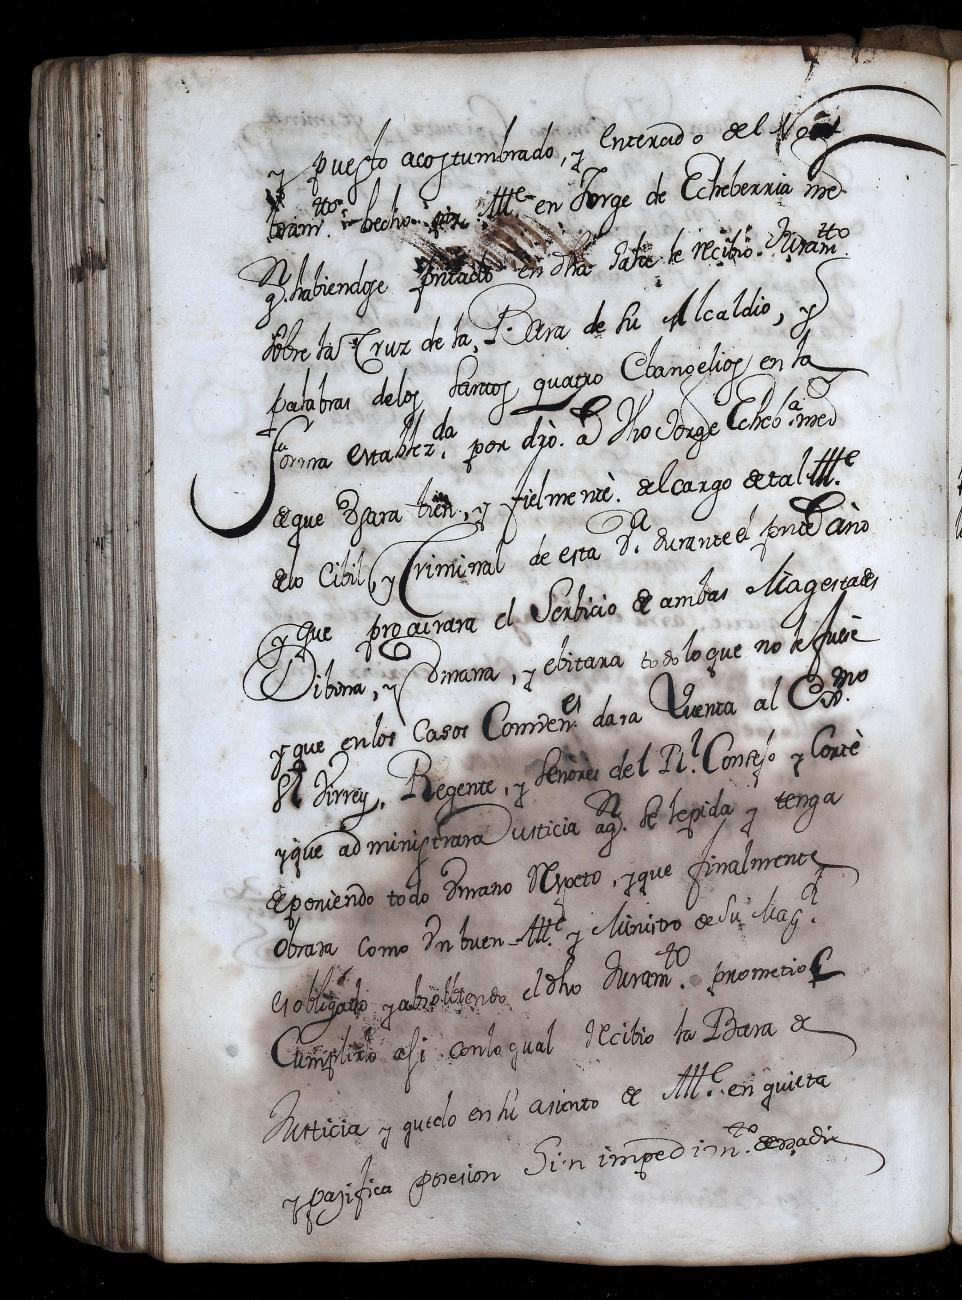 y puesto acostumbrado, y enterado del Nom
bram.to hecho por Alle en Jorge de Echeberria me
q.n habiendose pntado en dha Sala se recibio Juram.to
sobre la Cruz de la Bara de su Alcaldio, y
palabras delos Santos quatro Ebangelios en la
forma establez.da por dro. a Dho Jorge Echeb.a med
de que Usara bien, y fielmente el cargo de tal Alle
delo Cibil y Criminal de esta V.a durante el pnte año
y que procurara el Serbicio de ambas Magestades
Dibina, y Vmana, y ebitara todo lo que no le fuere
y que enlos Casos Comven.es dara Quenta al Ex.mo
S.r Virrey, Regente, y Señores del Rl. Consejo y Corte
y que administrara Justicia aq.n se lepida y tenga
deponiendo todo Vmano Respeto, y que finalmente
Obrara como Vn buen Alle y Ministro de Su Mag.d
es obligado y absolbiendo el dho Juram.to prometio
Cumplirlo asi conlo qual recibio la Bara de
Justicia y quedo en su asiento de Alle en quieta
y pasifica posesion Sin impedim.to de nadie